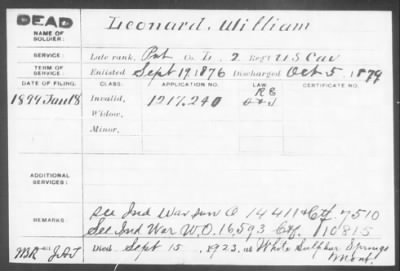 DEAD
NAME OF SOLDIER:
Leonard, William
SERVICE:
Late rank, Pvt Co. L, 2 Reg't U S Cav
TERM OF SERVICE:
Enlisted Sept 19, 1876 Discharged Oct 5, 1879
DATE OF FILING. CLASS. APPLICATION NO. LAW. CERTIFICATE NO.
1899 Jan 18 Invalid, 1217.240
Widow,
Minor,
ADDITIONAL SERVICES:
REMARKS:
See Ind War Sur O 14411 & Ctf. 7510
See Ind War W.O. 16,593 Ctf. 10815
Died Sept 15, 1923, at White Sulphur Springs
Mont.